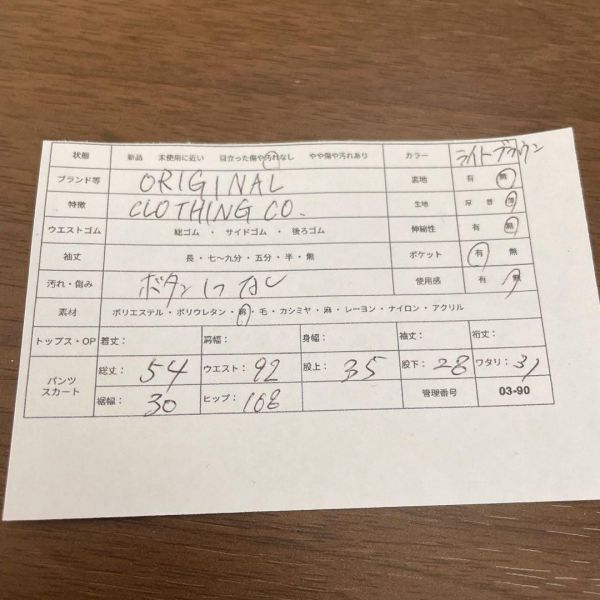 状態 新品 未使用に近い 目立った傷や汚れなし やや傷や汚れあり カラー ライトブラウン
ブランド等 ORIGINAL 裏地 有 無
特徴 CLOTHING CO. 生地 厚 普 薄
ウエストゴム 総ゴム ・ サイドゴム ・ 後ろゴム 伸縮性 有 無
袖丈 長・七〜九分・五分・半・無 ポケット 有 無
汚れ・傷み ボタン1つなし 使用感 有 無
素材 ポリエステル・ポリウレタン・綿・毛・カシミヤ・麻・レーヨン・ナイロン・アクリル
トップス・OP 着丈: 肩幅: 身幅: 袖丈: 裄丈:
パンツ スカート 総丈: 54 ウエスト: 92 股上: 35 股下: 28 ワタリ: 31
裾幅: 30 ヒップ: 108 管理番号 03-90